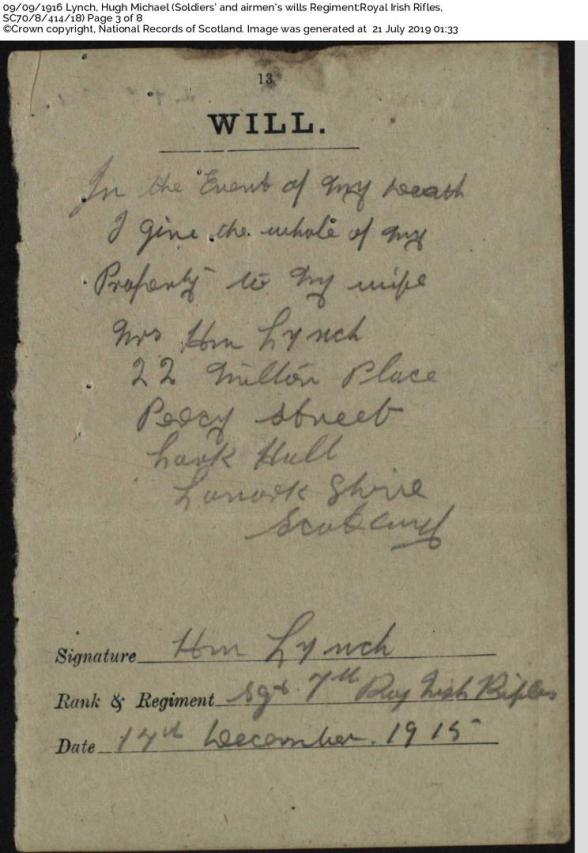 09/09/1916 Lynch, Hugh Michael (Soldiers' and airmen's wills Regiment:Royal Irish Rifles,
SC70/8/414/18) Page 3 of 8
©Crown copyright, National Records of Scotland. Image was generated at 21 July 2019 01:33
13
WILL.
In the Event of my Death
I give the whole of my
Property to my wife
Mrs Hm Lynch
22 Milton Place
Percy Street
Lark Hall
Lanark Shire
Scotland
Signature Hm Lynch
Rank & Regiment Sgt 7th Roy Irish Rifles
Date 17th December. 1915